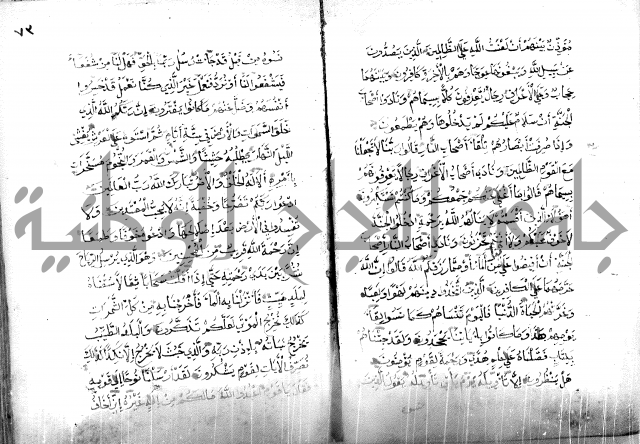 مؤذن بينهم ان لعنت الله على الظالمين الذين يصدون
عن سبيل الله ويبغونها عوجا وهم بالاخرة كافرون وبينهما
حجاب وعلى الاعراف رجال يعرفون كلا بسيماهم ونادوا اصحاب
الجنة ان سلام عليكم لم يدخلوها وهم يطمعون
واذا صرفت ابصارهم تلقاء اصحاب النار قالوا ربنا لا تجعلنا
مع القوم الظالمين ونادى اصحاب الاعراف رجالا يعرفونهم
بسيماهم قالوا ما اغنى عنكم جمعكم وما كنتم تستكبرون
اهؤلاء الذين اقسمتم لا ينالهم الله برحمة ادخلوا الجنة
لا خوف عليكم ولا انتم تحزنون ونادى اصحاب النار اصحاب
الجنة ان افيضوا علينا من الماء او مما رزقكم الله قالوا ان الله
حرمهما على الكافرين الذين اتخذوا دينهم لهوا ولعبا
وغرتهم الحياة الدنيا فاليوم ننساهم كما نسوا لقاء
يومهم هذا وما كانوا باياتنا يجحدون ولقد جئناهم
بكتاب فصلناه على علم هدى ورحمة لقوم يؤمنون
هل ينظرون الا تاويله يوم ياتي تاويله يقول الذين
٧٣
نسوه من قبل قد جاءت رسل ربنا بالحق فهل لنا من شفعاء
فيشفعوا لنا او نرد فنعمل غير الذي كنا نعمل قد خسروا
انفسهم وضل عنهم ما كانوا يفترون ان ربكم الله الذي
خلق السموات والارض في ستة ايام ثم استوى على العرش يغشي
الليل النهار يطلبه حثيثا والشمس والقمر والنجوم مسخرات
بامره الا له الخلق والامر تبارك الله رب العالمين
ادعوا ربكم تضرعا وخفية انه لا يحب المعتدين ولا
تفسدوا في الارض بعد اصلاحها وادعوه خوفا وطمعا
ان رحمة الله قريب من المحسنين وهو الذي يرسل الرياح
بشرا بين يدي رحمته حتى اذا اقلت سحابا ثقالا سقناه
لبلد ميت فانزلنا به الماء فاخرجنا به من كل الثمرات
كذلك نخرج الموتى لعلكم تذكرون والبلد الطيب
يخرج نباته باذن ربه والذي خبث لا يخرج الا نكدا كذلك
نصرف الايات لقوم يشكرون لقد ارسلنا نوحا الى قومه
فقال يا قوم اعبدوا الله مالكم من اله غيره اني اخاف
جامعة النجاح الوطنية